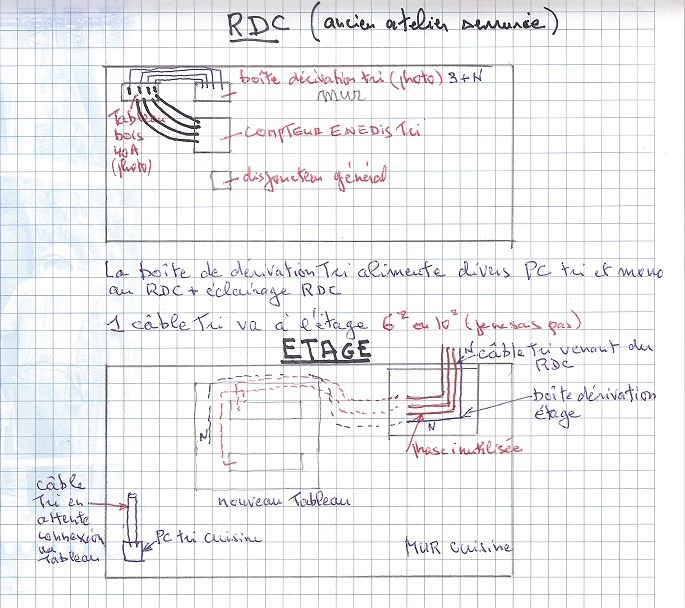 RDC (ancien atelier serrurerie)
boîte dérivation tri (photo) 3+N
mur
Tableau
bois
40A
(photo)
COMPTEUR ENEDIS Tri
disjoncteur général
La boîte de dérivation Tri alimente divers PC tri et mono
au RDC + éclairage RDC
1 câble Tri va à l'étage 6² ou 10² (je ne sais pas)
ETAGE
N
câble Tri venant du
RDC
boîte dérivation
étage
N
N
phase inutilisée
nouveau Tableau
câble
Tri en
attente
connexion
au
Tableau
PC tri cuisine
MUR cuisine